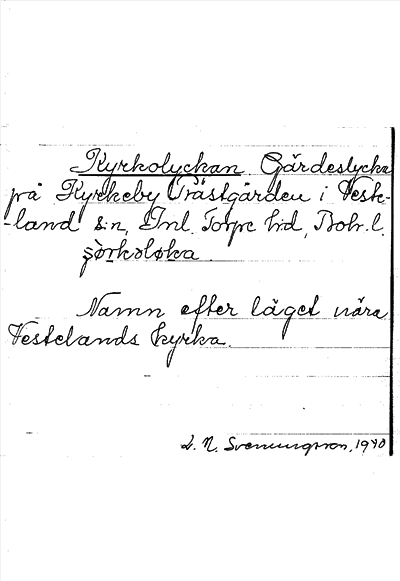 Kyrkolyckan Gärdeslycka
på Kyrkeby Prästgården i Veste-
-land s:n, Inl. Torpe hd, Boh. l.
Namn efter läget nära
Vestelands kyrka.
S. N. Svenungsson, 1940